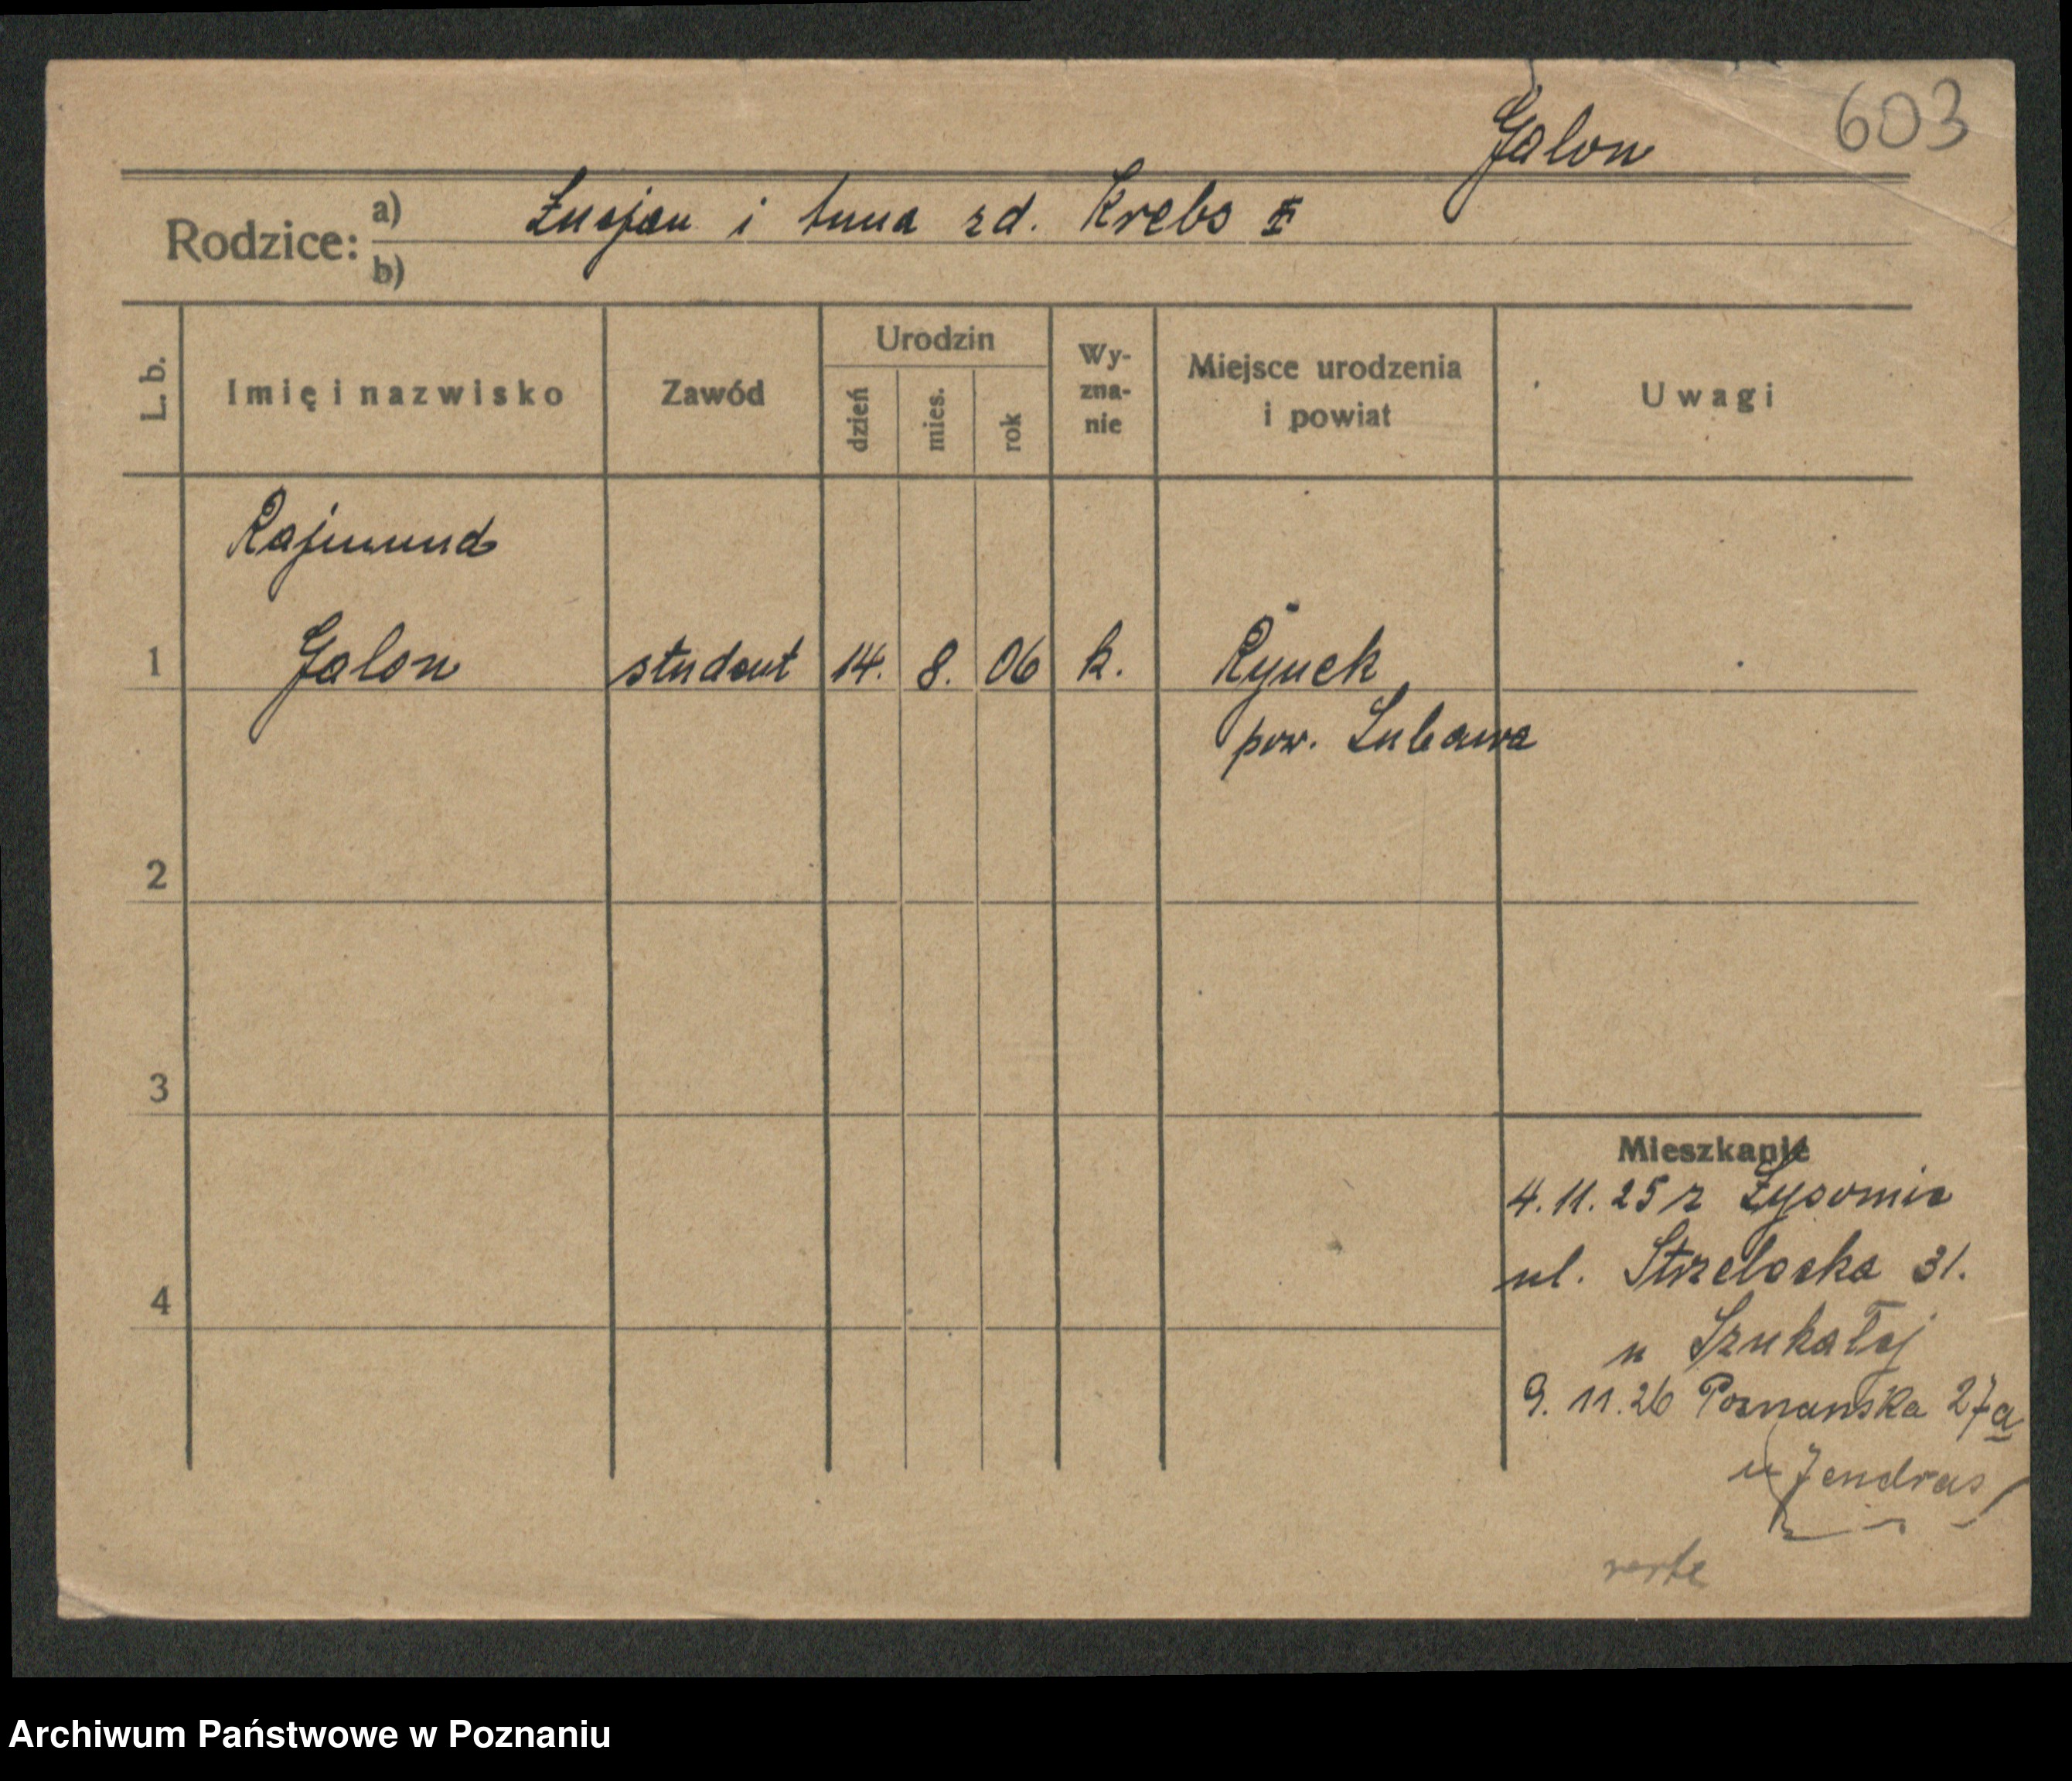 603
Galon
Rodzice: a) Łucjan i Anna zd. Krebs
b)
L. b.
Imię i nazwisko
Zawód
Urodzin
dzień
mies.
rok
Wy-
zna-
nie
Miejsce urodzenia
i powiat
Uwagi
Rajmund
1 Galon student 14. 8. 06 k. Rynek
pow. Lubawa
2
3
4
Mieszkanie
4.11.25 z Łysomic
ul. Strzelecka 31.
u Szukałej
9. 11. 26 Poznanska 27a
u Jendras
verte
Archiwum Państwowe w Poznaniu